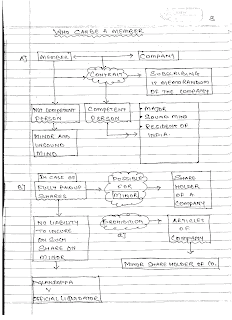 WHO CAN BE A MEMBER
A] MEMBER
COMPANY
CONTRACT
SUBSCRIBING
OF MEMORANDUM
OF THE COMPANY
NOT COMPETENT
PERSON
COMPETENT
PERSON
MAJOR
SOUND MIND
RESIDENT OF
INDIA.
MINOR AND
UNSOUND
MIND
B]
IN CASE OF
FULLY PAIDUP
SHARES
POSSIBLE
FOR
MINOR
SHARE
HOLDER
OF A
COMPANY
NO LIABILITY
TO INCURE
ON SUCH
SHARE ON
MINOR
PROHIBITION
ARTICLES
OF
COMPANY
MINOR SHARE HOLDER OF CO.
V
OFFICIAL LIQUIDATOR